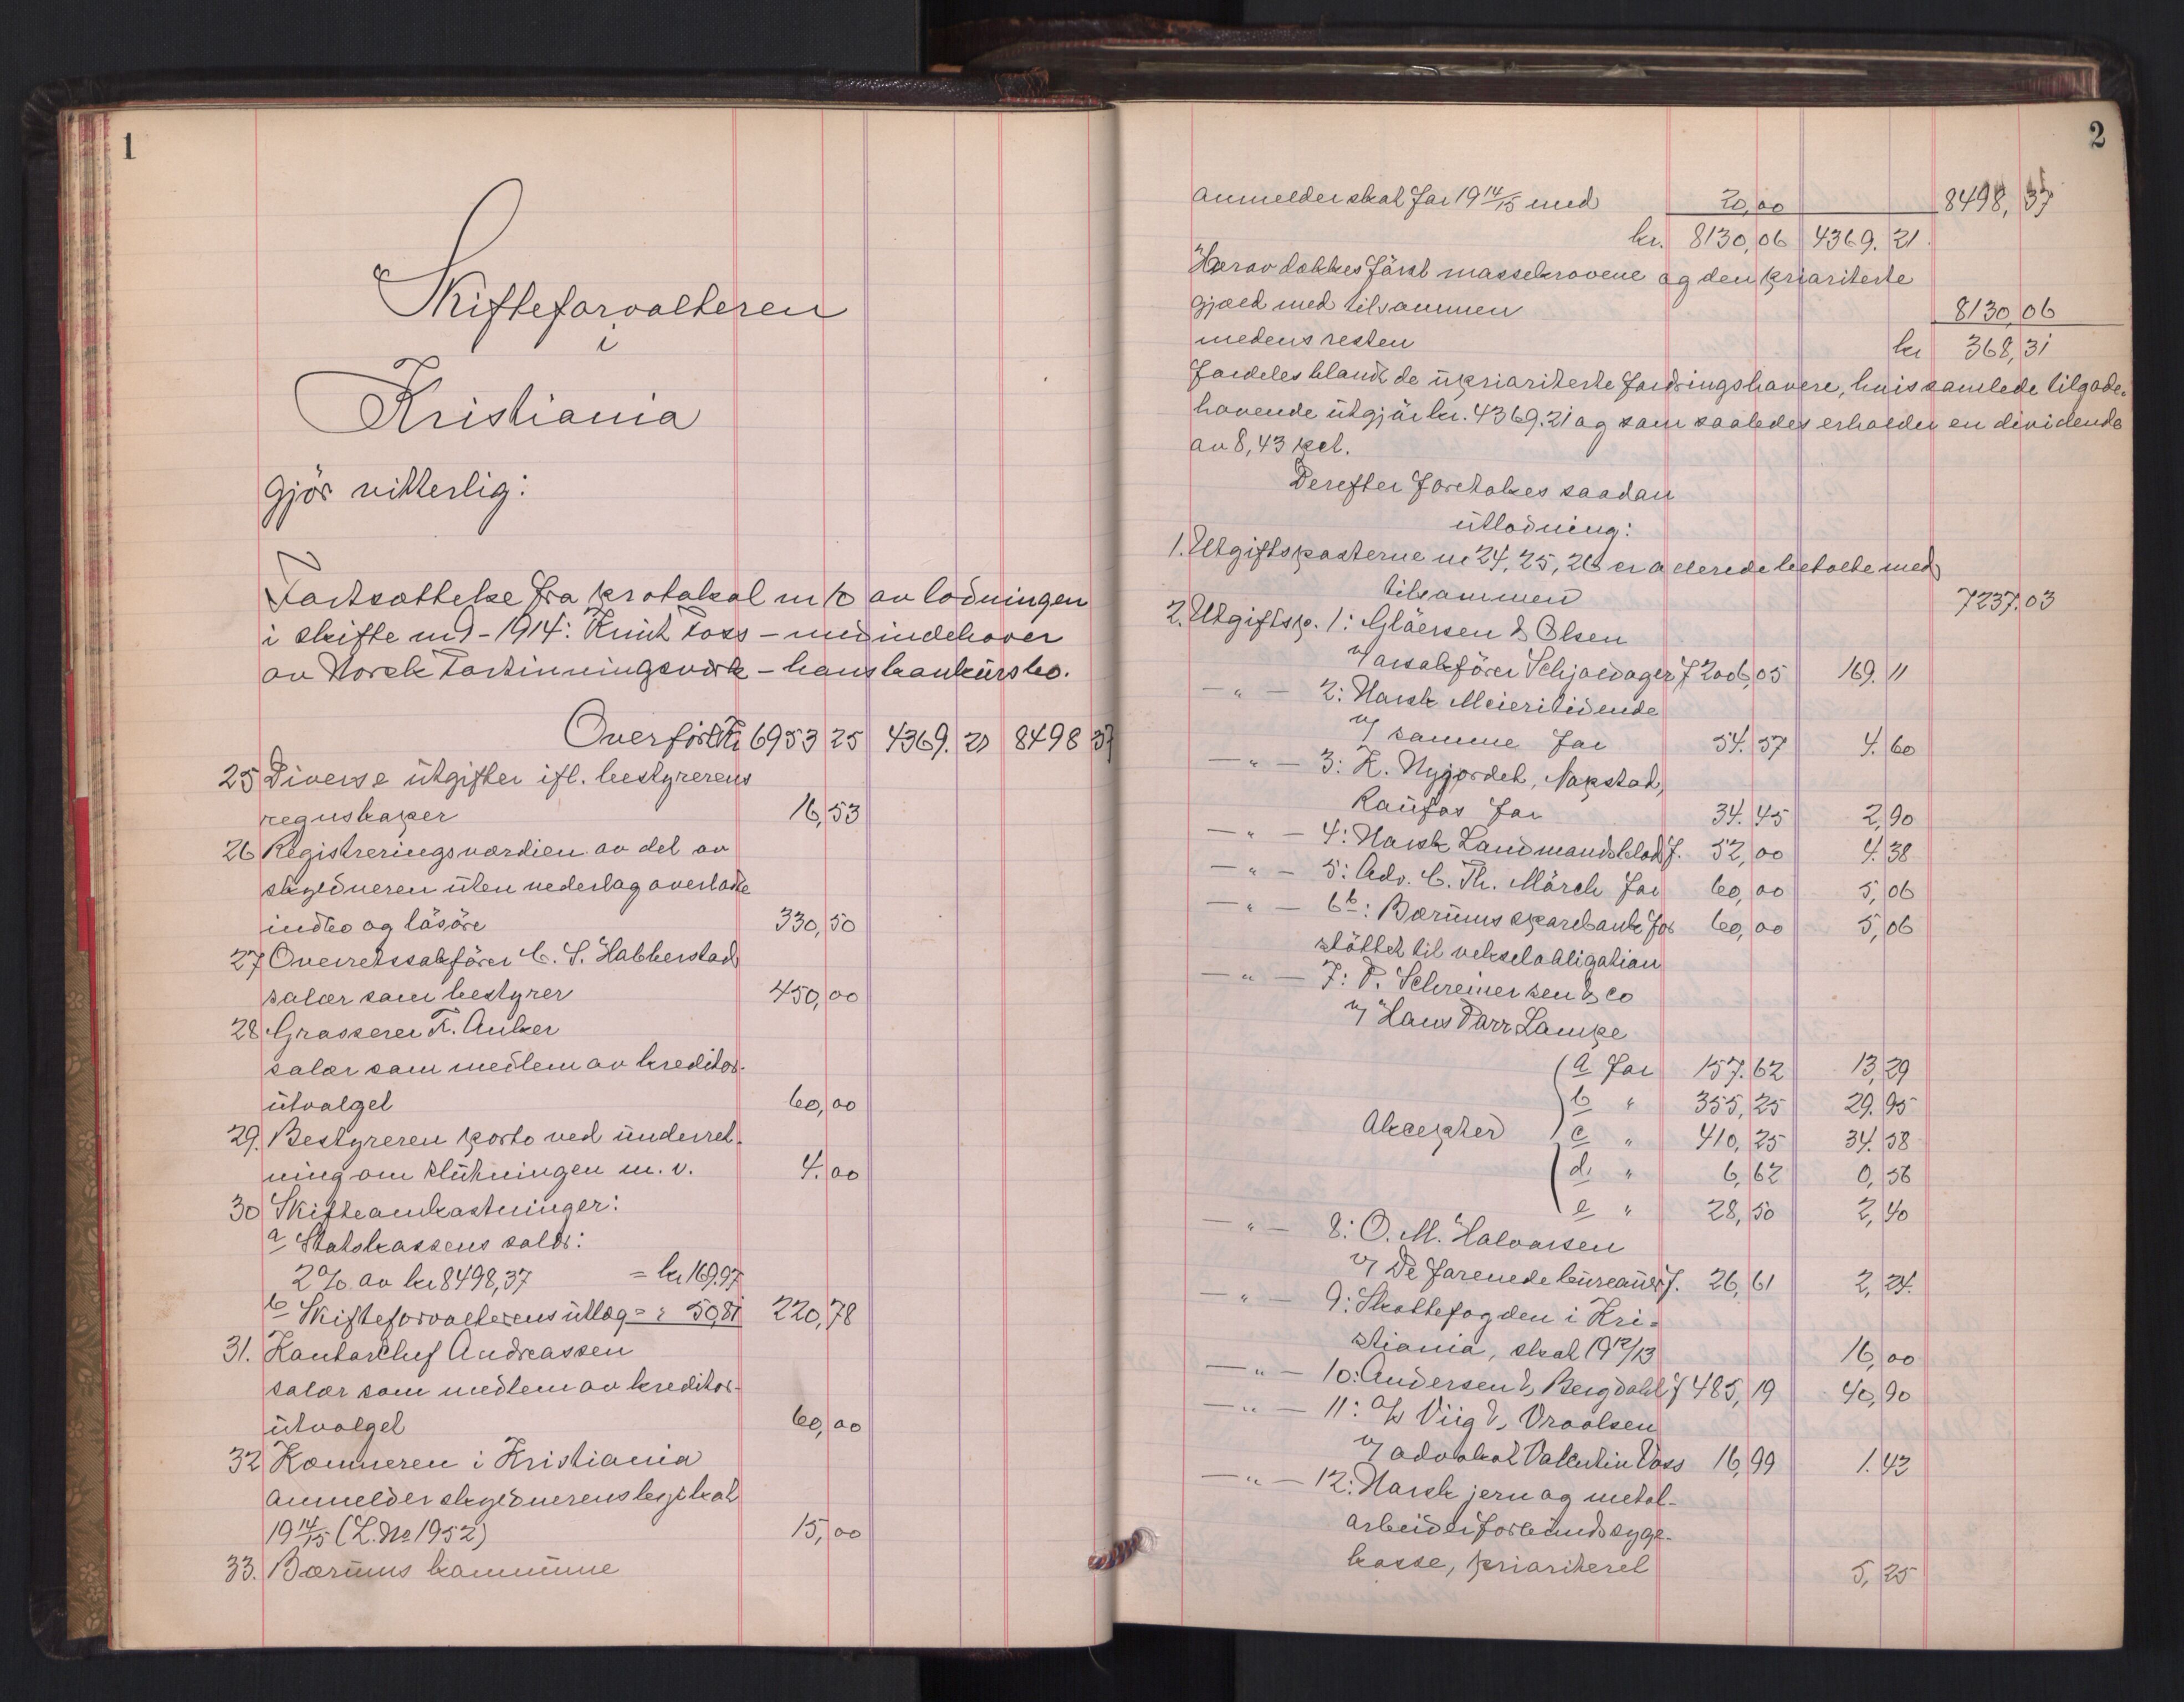 1
Skifteforvalteren
i
Kristiania
gjör vitterlig:
Fortsættelse fra protokol nr 10 av lodningen
i skifte nr 9 - 1914: Knut Foss - medindehaver
av Norsk Fortinningsverk - hans konkursbo.
Overfört Kr 6953 25 4369. 21 8498 37
25 Diverse utgifter ifl. bestyrerens
regnskaper 16,53
26 Registreringsværdien av det av
skyldneren uten vederlag overladte
indbo og lösöre 330,50
27 Overretssakförer C. S. Habberstad
salær som bestyrer 450,00
28 Grosserer F. Anker
salær som medlem av kreditor-
utvalget 60,00
29. Bestyreren porto ved underret-
ning om slutningen m. v. 4.00
30 Skifteomkostninger:
a Statskassens salær:
2% av kr 8498,37 = kr 169.97
b Skifteforvalterens utlæg = " 50,81 220,78
31. Kontorchef Andreassen
salær som medlem av kreditor-
utvalget 60,00
32 Kæmneren i Kristiania
anmelder skyldnerens byskat
19 14/15 (L. No 1952) 15,00
33. Bærums kommune
2
anmelder skat for 19 14/15 med 20,00 8498,37
kr. 8130,06 4369. 21.
Herav dækkes först massekravene og den prioriterte
gjæld med tilsammen 8130,06
medens resten kr 368,31
fordeles blandt de uprioriterte fordringshavere, hvis samlede tilgode-
havende utgjör kr. 4369.21 og som saaledes erholder en dividende
av 8,43 pct.
Derefter foretokes saadan
utlodning:
1. Utgiftsposterne nr 24, 25, 26 er allerede betalte med
tilsammen 7237.03
2. Utgiftsp. 1: Gläersen & Olsen
v/ orsakförer Schjoldager f 2006,05 169. 11
— " — 2: Norsk Meieritidende
v/ samme for 54.57 4.60
— " — 3: K. Nygjordet, Nopstad,
Raufos for 34.45 2,90
— " — 4: Norsk Landmandsblad f. 52,00 4.38
— " — 5: Adv. C. Th. Mörch for 60,00 5,06
— " — 6b: Bærums sparebank for 60,00 5,06
stöttet til vekselobligation
— " — 7: P. Schreiner sen & Co
v/ Hans Parr Lampe
a for 157.62 13,29
b " 355,25 29.95
Akcepter c " 410,25 34.58
d " 6,62 0,56
e " 28,50 2,40
— " — 8: O. M. Halvorsen
v/ De forenede bureauer f. 26,61 2,24.
— " — 9: Skattefogden i Kri-
stiania, skat 19 12/13 16,00
— " — 10: Andersen & Bergdahl f 485,19 40,90
— " — 11: A/S Viig & Vraalsen
v/ advokat Valentin Voss 16,99 1.43
— " — 12: Norsk jern og metal-
arbeiderforbunds syge-
kasse, prioriteret 5,25